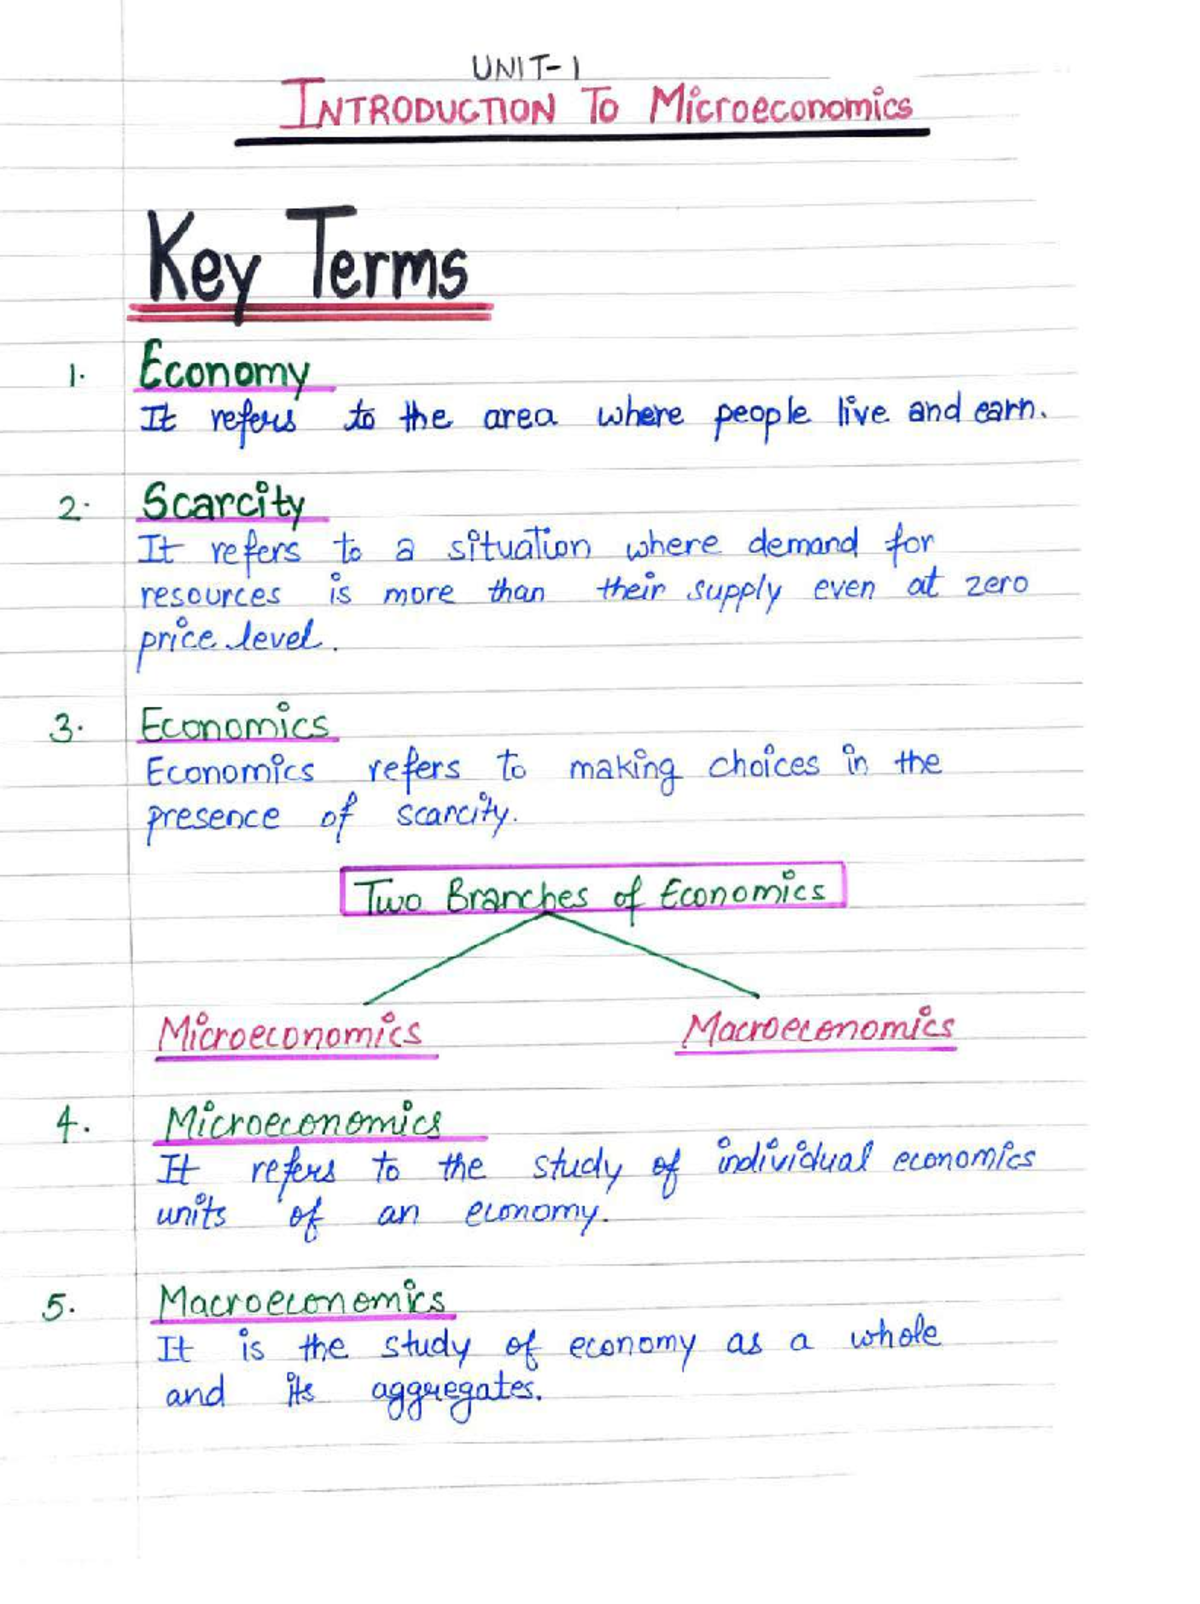 UNIT-1
INTRODUCTION TO Microeconomics
Key Terms
1. Economy
It refers to the area where people live and earn.
2. Scarcity
It refers to a situation where demand for
resources is more than their supply even at zero
price level.
3. Economics
Economics refers to making choices in the
presence of scarcity.
Two Branches of Economics
Microeconomics Macroeconomics
4. Microeconomics
It refers to the study of individual economics
units of an economy.
5. Macroeconomics
It is the study of economy as a whole
and its aggregates.